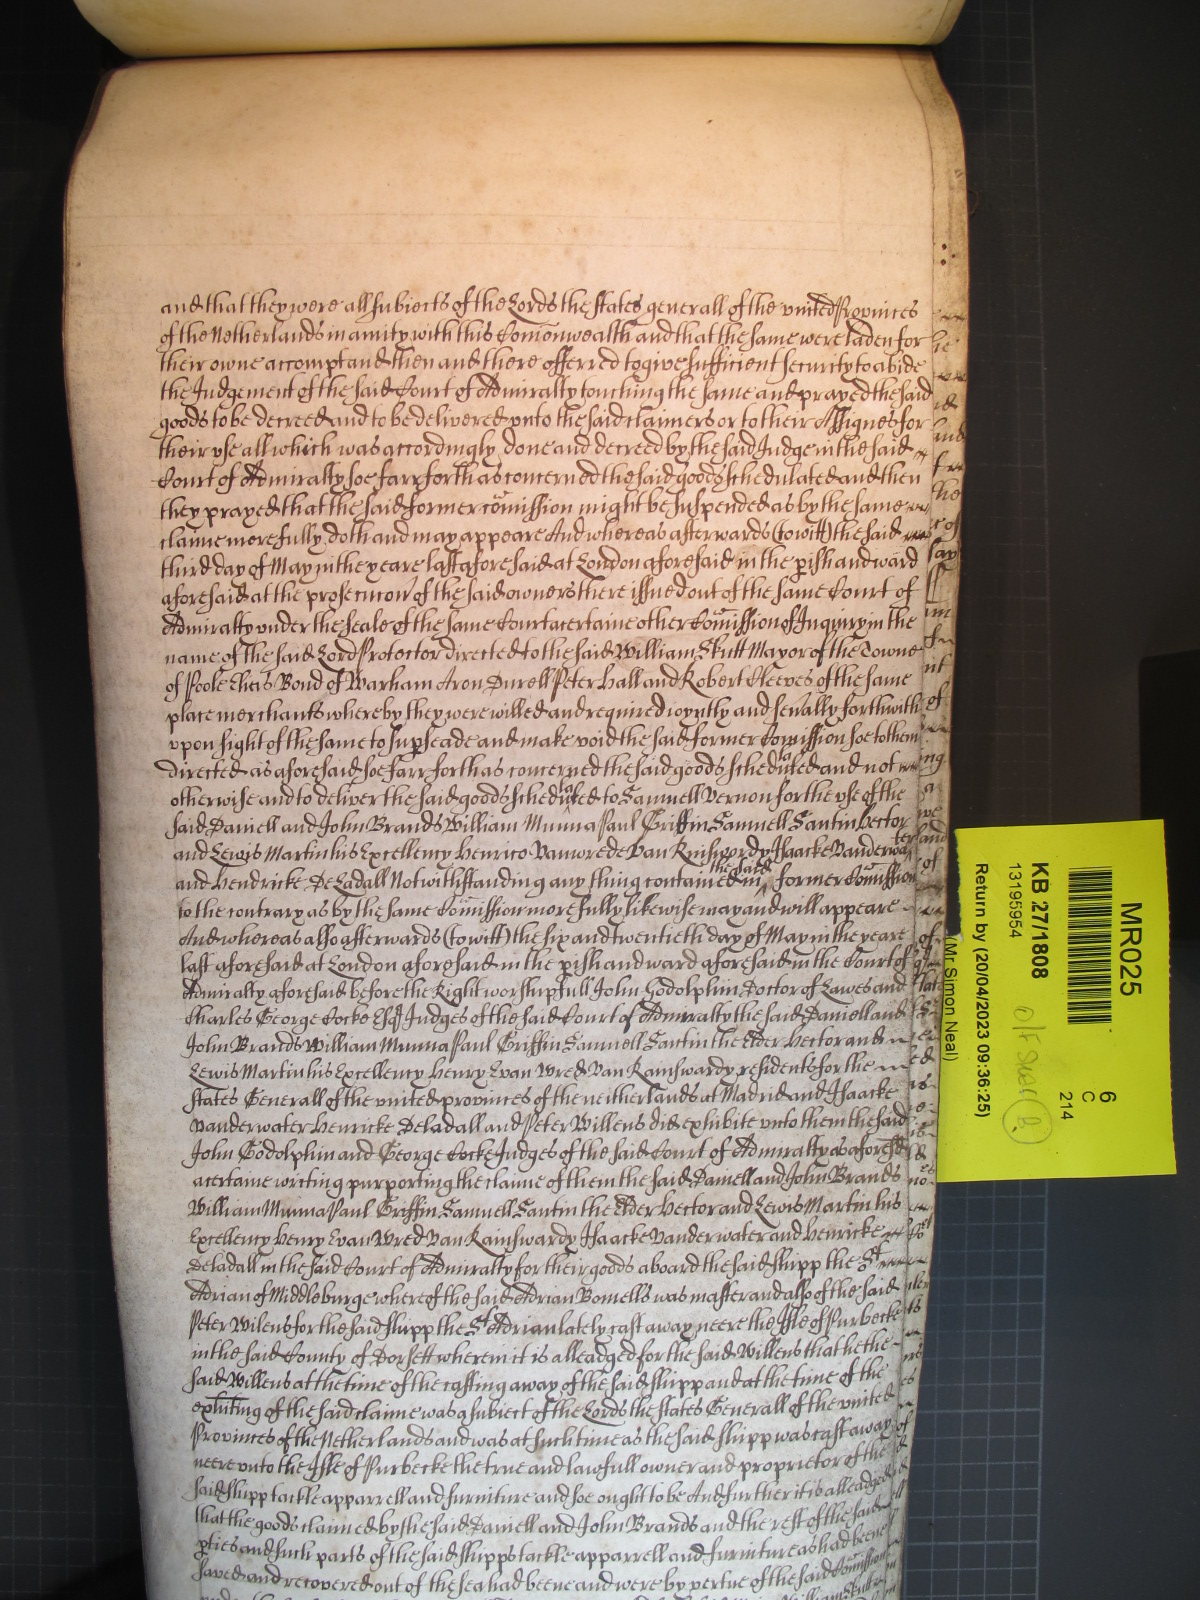 and that they were all subiects of the Lords the States generall of the united Provinces
of the Netherlands in amity with this Comonwealth and that the same were laden for
their owne accompt and then and there offerred to give sufficient security to abide
the Judgement of the said Court of Admiralty touching the same and prayed the said
goods to be decreed and to be delivered unto the said claimers or to their Assignes for
their use all which was accordingly done and decreed by the said Judge in the said
Court of Admiralty soe farr forth as concerned the said goods schedulated and then
they prayed that the said former comission might be suspended as by the same
claime more fully doth and may appeare And whereas afterwards (to witt) the said
third day of May in the yeare last aforesaid at London aforesaid in the pish and ward
aforesaid at the prosecucon of the said owners there issued out of the same Court of
Admiralty under the seale of the same Court a certaine other Comission of Inquiry in the
name of the said Lord Protector directed to the said William Skutt Mayor of the Towne
of Poole Bond of Warham Aron Durell Peter Hall and Robert Cleeves of the same
place merchants whereby they were willed and required ioyntly and sevally forthwith
upon sight of the same to supseade and make void the said former Comission soe to them
directed as aforesaid soe farr forth as concerned the said goods schedulated and not
otherwise and to deliver the said goods schedulated to Samuell Vernon for the use of the
said Daniell and John Brands William Munna Paul Griffin Samuell Santin Hector
and Lewis Martin his Excellency Henrico Vanwrede Van Isaacke Vanderwater
and Hendricke Deladall Notwithstanding any thing contained in the said former Comission
to the contrary as by the same Comission more fully likewise may and will appeare
And whereas also afterwards (to witt) the six and twentieth day of May in the yeare
last aforesaid at London aforesaid in the pish and ward aforesaid in the Court of
Admiralty aforesaid before the Right worshipfull John Godolphin Doctor of Lawes and
Charles George Cocke Esq Judges of the said Court of Admiralty the said Daniell and
John Brands William Munna Paul Griffin Samuell Santin the Elder Hector and
Lewis Martin his Excellency Henry Evan Wred Van Rainswardy residents for the
States Generall of the united provinces of the neitherlands at Madrid and Isaacke
Vanderwater Henricke Deladall and Peter Willens did exhibite unto them the said
John Godolphin and George Cocke Judges of the said Court of Admiralty as aforesd
a certaine writing purporting the claime of them the said Daniell and John Brands
William Munna Paul Griffin Samuell Santin the Elder Hector and Lewis Martin his
Excellency Henry Evan Wred Van Rainswardy Isaacke Vanderwater and Henricke
Deladall in the said Court of Admiralty for their goods aboard the said shipp the St
Adrian of Middleburge whereof the said Adrian Bomells was master and also of the said
Peter Wilens for the said shipp the St Adrian lately cast away neere the Isle of Purbecke
in the said County of Dorsett wherein it is alleadged for the said Willens that he the
said Willens at the time of the casting away of the said shipp and at the time of the
exhiting of the said claime was a subiect of the Lords the States Generall of the united
Provinces of the Netherlands and was at such time as the said shipp was cast away
neere unto the Isle of Purbecke the true and lawfull owner and proprietor of the
said shipp tackle apparrell and furniture and soe ought to be And further it is alleadged
that the goods claimed by the said Daniell and John Brands and the rest of the said
pties and such parts of the said shipps tackle apparrell and furniture as had beene
saved and recovered out of the sea had beene and were by vertue of the said Comission
MR025
6
C
214
KB 27/1808
13195954
Return by (20/04/2023 09:36:25)
(Mr Simon Neal)